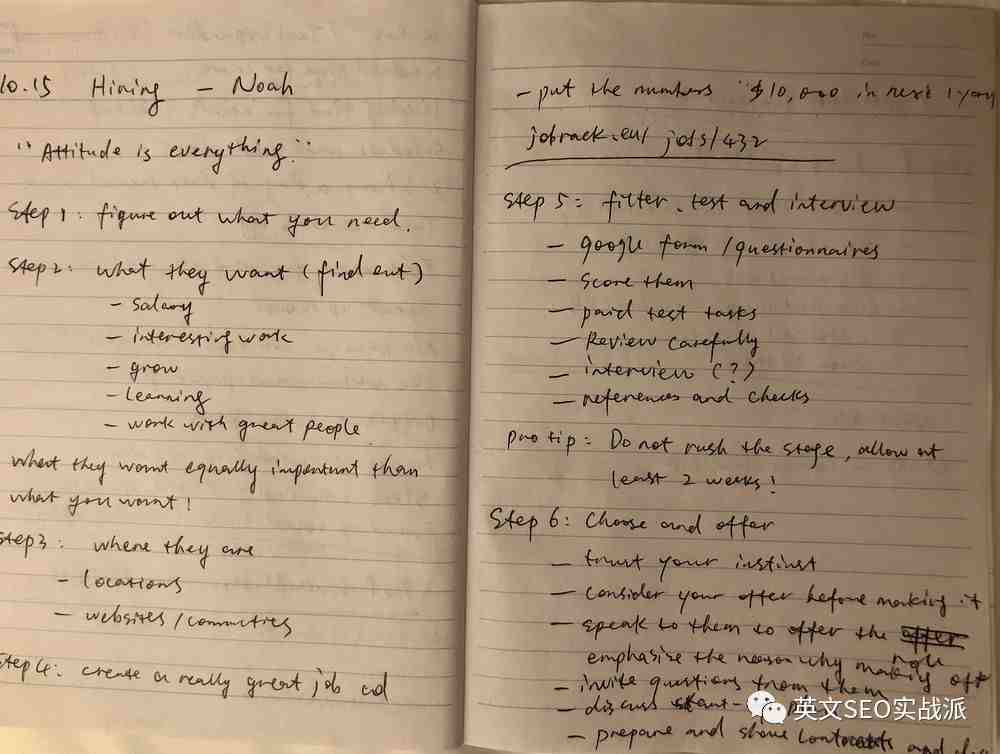 10.15 Hiring - Noah
"Attitude is everything."
Step 1: figure out what you need.
Step 2: what they want (find out)
- salary
- interesting work
- grow
- Learning
- work with great people
what they want equally important than
what you want!
Step 3: where they are
- locations
- websites/commuties
Step 4: create a really great job ad
- put the numbers "$10,000 in next 1 year
jobrack.eu/jobs/432
Step 5: filter, test and interview
- google form/questionnaires
- Score them
- paid test tasks
- Review carefully
- interview (?)
- references and checks
pro tip: Do not rush the stage, allow at
least 2 weeks!
Step 6: Choose and offer
- trust your instinct
- consider your offer before making it
- speak to them to offer the role
emphasise the reason why making off
- invite questions from them
- discuss start-
- prepare and share contracts and
英文SEO实战派